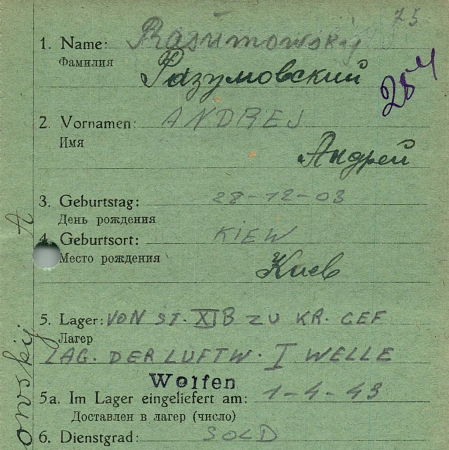 75
1. Name: Rasumowskij
Фамилия
Разумовский
284
2. Vornamen: ANDREJ
Имя
Андрей
3. Geburtstag: 28-12-08
День рождения
4. Geburtsort: KIEW
Место рождения
Киев
5. Lager: VON ST. XI B ZU KR. GEF
Лагер
LAG. DER LUFTW. I WELLE
Wolfen
5a. Im Lager eingeliefert am: 1-4-43
Доставлен в лагер (число)
6. Dienstgrad: SOLD